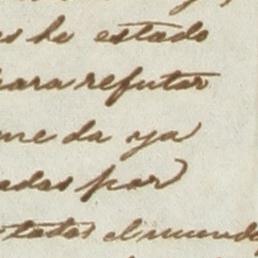 es he estado
para refutar
me da ya
adas por
tatas el mundo